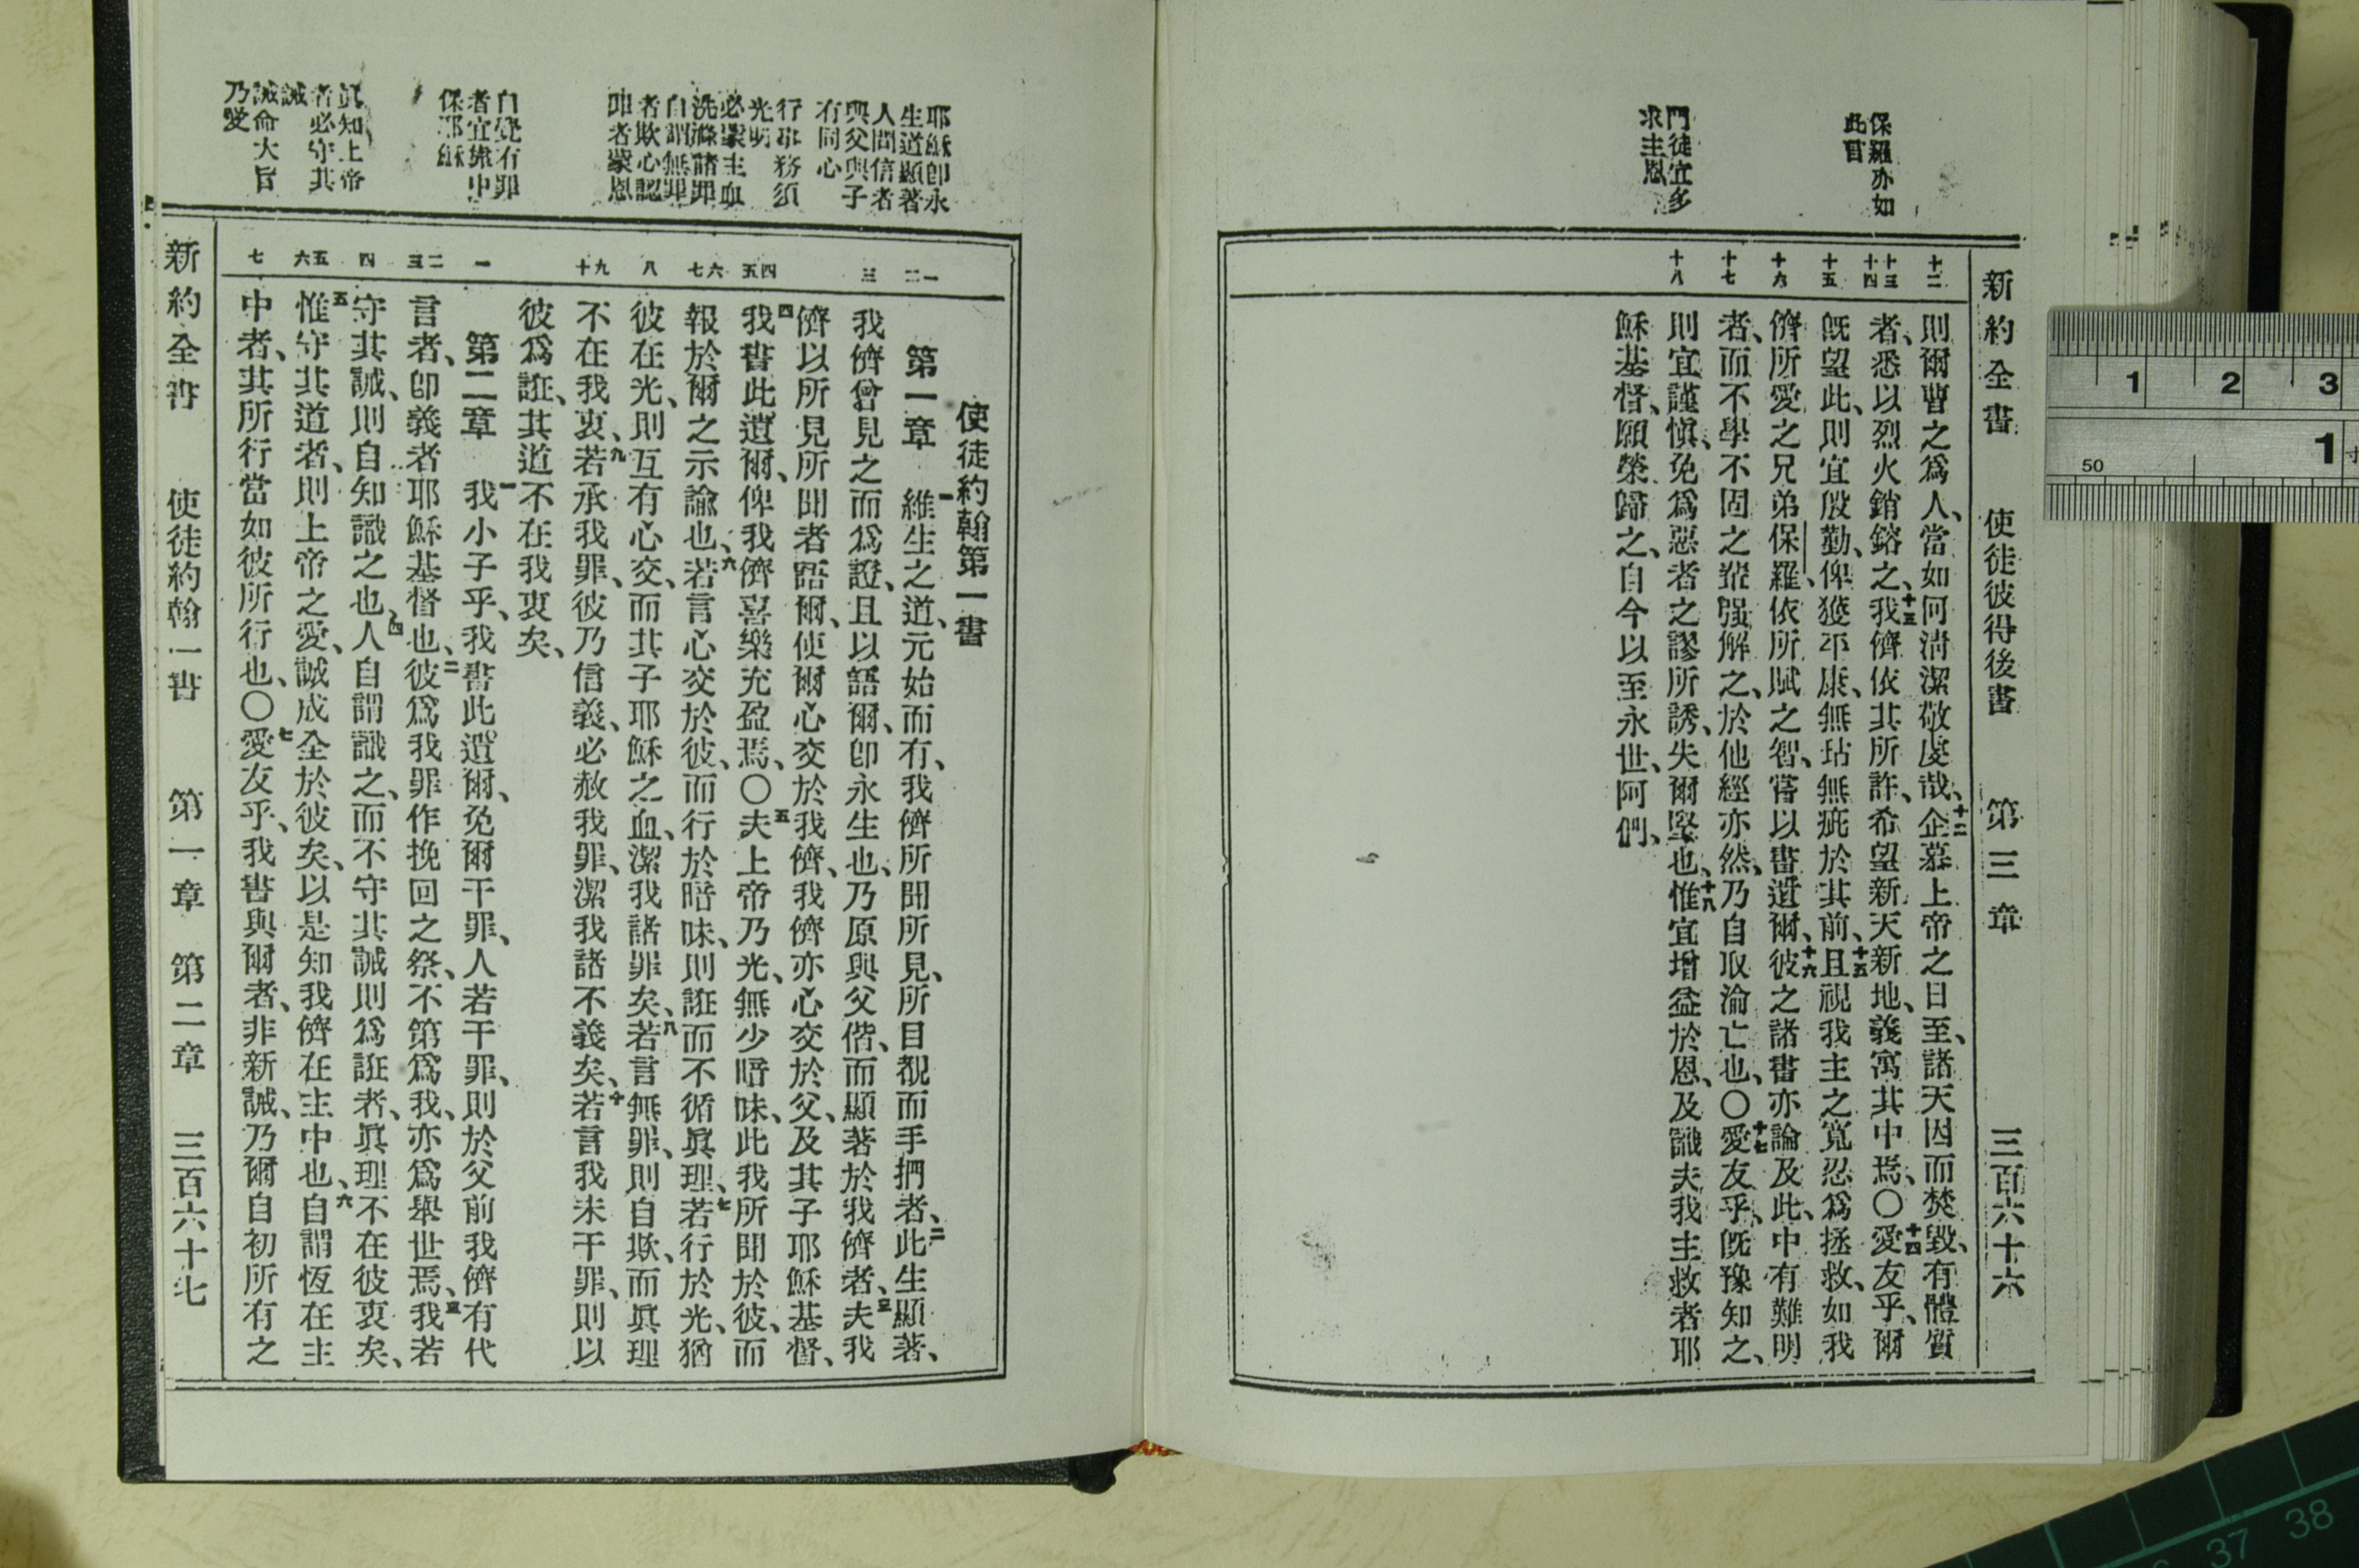 新約全書 使徒彼得後書 第三章 三百六十六
保羅亦如
此言
門徒宜多
求主恩
十二
十三
十四
十五
十六
十七
十八
則爾曹之爲人、當如何淸潔敬虔哉、十二企慕上帝之日至、諸天因而焚毀、有體質
者、悉以烈火銷鎔之、十三我儕依其所許、希望新天新地、義寓其中焉、〇十四愛友乎、爾
旣望此、則宜殷勤、俾獲平康、無玷無疵於其前、十五且視我主之寬忍爲拯救、如我
儕所愛之兄弟保羅、依所賦之智、嘗以書遺爾、十六彼之諸書亦論及此、中有難明
者、而不學不固之輩强解之、於他經亦然、乃自取淪亡也、〇十七愛友乎、旣豫知之、
則宜謹愼、免爲惡者之謬所誘、失爾堅也、十八惟宜增益於恩、及識夫我主救者耶
穌基督、願榮歸之、自今以至永世、阿們、
耶穌卽永
生道顯著
人間信者
與父與子
有同心
行事務須
光明
必蒙主血
洗滌諸罪
自謂無罪
者欺心認
罪者蒙恩
自覺有罪
者宜賴中
保耶穌
眞知上帝
者必守其
誡
誡命大旨
乃愛
一
二
三
四
五
六
七
八
九
十
一
二
三
四
五
六
七
使徒約翰第一書
第一章 一維生之道、元始而有、我儕所聞所見、所目覩而手捫者、二此生顯著、
我儕曾見之而爲證、且以語爾、卽永生也、乃原與父偕、而顯著於我儕者、三夫我
儕以所見所聞者語爾、使爾心交於我儕、我儕亦心交於父、及其子耶穌基督、
四我書此遺爾、俾我儕喜樂充盈焉、〇五夫上帝乃光、無少暗昧、此我所聞於彼、而
報於爾之示諭也、六若言心交於彼、而行於暗昧、則誑而不循眞理、七若行於光、猶
彼在光、則互有心交、而其子耶穌之血、潔我諸罪矣、八若言無罪、則自欺、而眞理
不在我衷、九若承我罪、彼乃信義、必赦我罪、潔我諸不義矣、十若言我未干罪、則以
彼爲誑、其道不在我衷矣、
第二章 一我小子乎、我書此遺爾、免爾干罪、人若干罪、則於父前我儕有代
言者、卽義者耶穌基督也、二彼爲我罪作挽回之祭、不第爲我、亦爲舉世焉、三我若
守其誡、則自知識之也、四人自謂識之、而不守其誡、則爲誑者、眞理不在彼衷矣、
五惟守其道者、則上帝之愛、誠成全於彼矣、以是知我儕在主中也、六自謂恆在主
中者、其所行當如彼所行也、〇七愛友乎、我書與爾者、非新誡、乃爾自初所有之
新約全書 使徒約翰一書 第一章 第二章 三百六十七
1 2 3
50 1寸
37 38